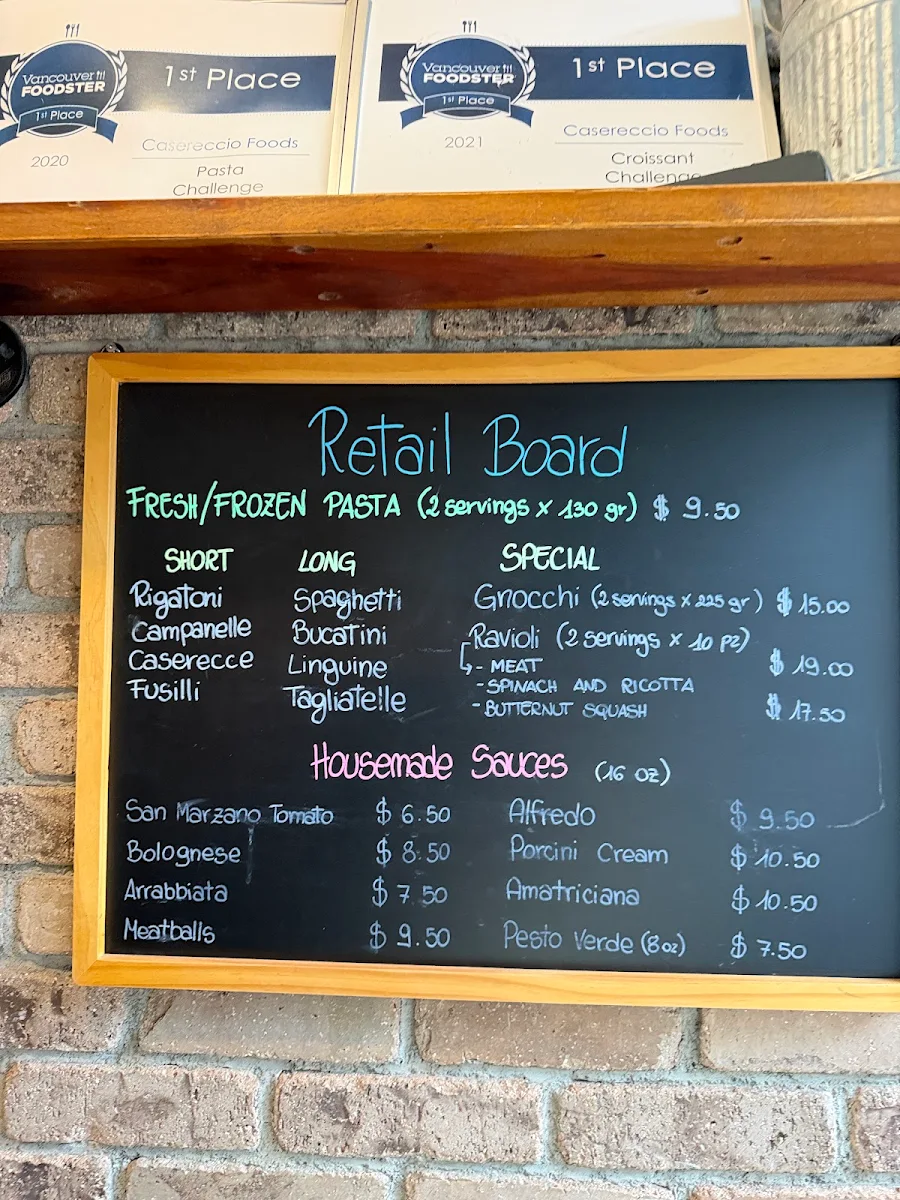 Vancouver
FOODSTER
1st Place
2020
1st Place
Casereccio Foods
Pasta
Challenge
Vancouver
FOODSTER
1st Place
2021
1st Place
Casereccio Foods
Croissant
Challenge
Retail Board
FRESH/FROZEN PASTA (2 servings x 130 gr) $ 9.50
SHORT LONG SPECIAL
Rigatoni Spaghetti Gnocchi (2 servings x 225 gr) $ 15.00
Campanelle Bucatini Ravioli (2 servings x 10 pz)
Caserecce Linguine - MEAT $ 19.00
Fusilli Tagliatelle - SPINACH AND RICOTTA
- BUTTERNUT SQUASH $ 17.50
Housemade Sauces (16 oz)
San Marzano Tomato $ 6.50 Alfredo $ 9.50
Bolognese $ 8.50 Porcini Cream $ 10.50
Arrabbiata $ 7.50 Amatriciana $ 10.50
Meatballs $ 9.50 Pesto Verde (8oz) $ 7.50